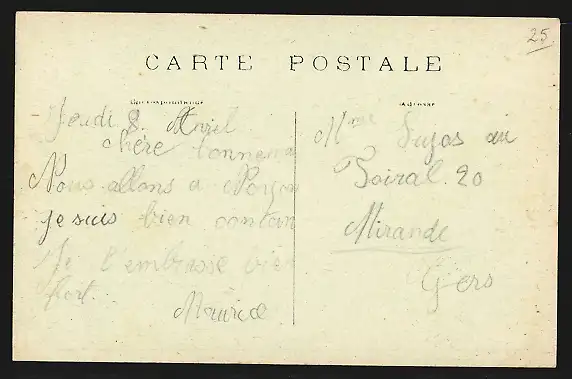 25
CARTE POSTALE
Correspondance
Adresse
Jeudi 8 Avril
chère
Nous allons a
je suis bien contan
Je t'embrasse bien
fort.
Maurice
Mme Dujas au
Poiral 20
Mirande
Gers